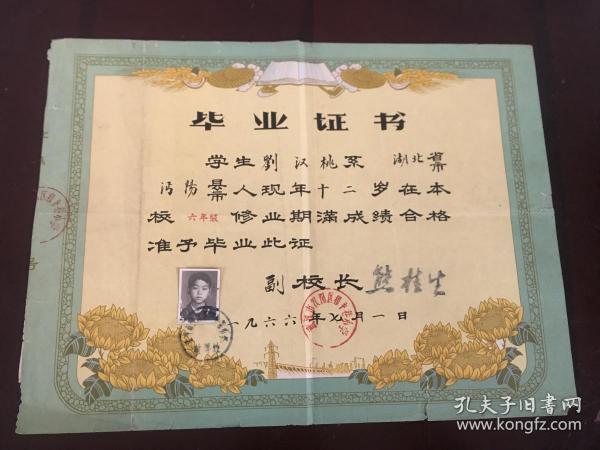 毕业证书
学生劉汉桃系 湖北省市
沔阳县市人现年十二岁在本
校六年级修业期满成绩合格
准予毕业此证
副校长 熊桂生
一九六六年七月一日
号
孔夫子旧书网
www.kongfz.com